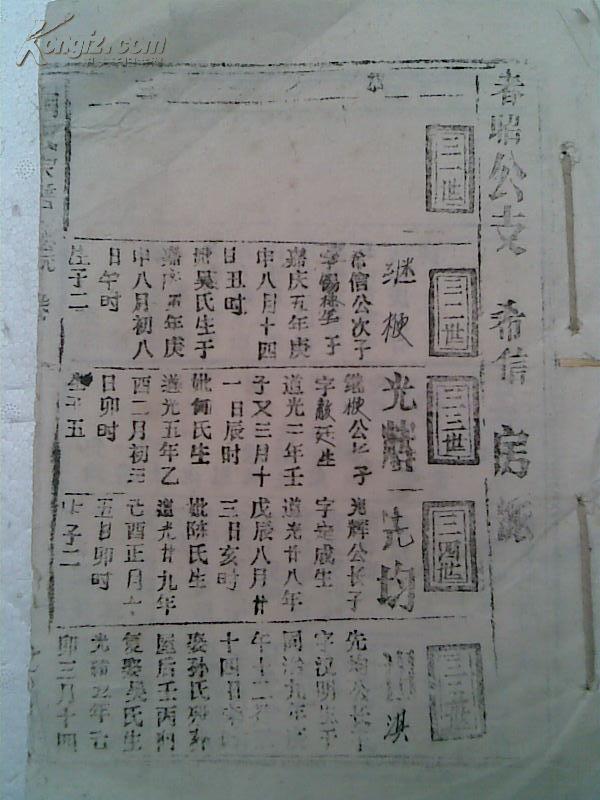 Kongfz.com
春昭公支 希信 房派
三一世
三二世
继梗
希信公次子
嘉庆五年庚
申八月十四
日丑时
妣吴氏生于
嘉庆五年庚
申八月初八
日午时
生子二
三三世
光辉
继梗公长子
字敬廷生
道光二年壬
子又三月十
一日辰时
氏生
道光五年乙
酉二月初三
日卯时
生子五
三四世
先均
光辉公长子
字定成生
道光廿八年
戊辰八月廿
三日亥时
妣陈氏生
道光廿九年
己酉正月
五日卯时
生子二
世
淇
先均公长子
字汉明生于
同治九年庚
午十二月
十四日
娶孙氏
屋后壬丙向
复娶吴氏生
光绪五年己
卯三月十四